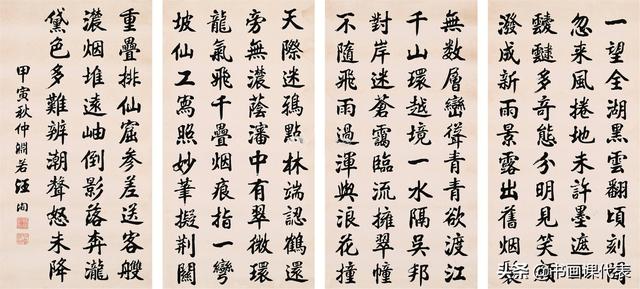 一望全湖黑雲翻頃刻間
忽来風捲地未許墨遮
靉靆多奇態分明見笑顔
潑成新雨景露出舊烟鬟
無数層巒聳青青欲渡江
千山環越境一水隔吳邦
對岸迷蒼靄臨流擁翠幢
不隨飛雨過渾與浪花撞
天際迷鴉點林端認鶴還
旁無濃蔭瀋中有翠微環
龍氣飛千疊烟痕指一彎
坡仙工寫照妙筆擬荆關
重疊排仙窟參差送客艭
濃烟堆遠岫倒影落奔瀧
黛色多難辨潮聲怒未降
甲寅秋仲淵若汪洵
头条@书画课代表